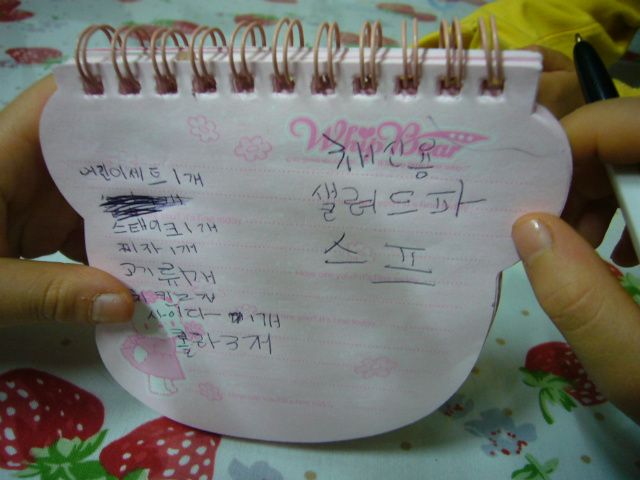 Whip Bear
어린이세트 1개
스테이크 1개
피자 1개
고기류 1개
사이다 1개
콜라 3개
샐러드파
스프